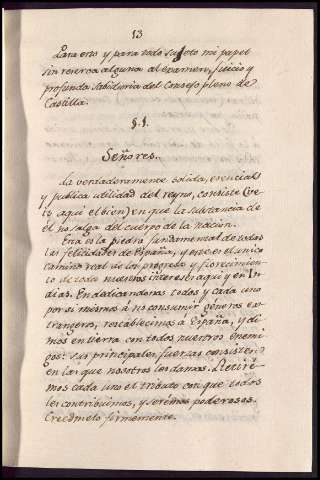 13
Para esto y para todo sujeto mi papel
sin reserva alguna al examen, juicio y
profunda sabiduria del Consejo pleno de
Castilla.
§.1.
Señores.
La verdaderamente solida, esencial
y publica utilidad del reyno, consiste (ve-
is aqui el bien) en que la substancia de
el no salga del cuerpo de la nacion.
Esta es la piedra fundamental de todas
las felicidades de España, y este es el unico
camino real de los progresos y florecimien-
to de todos nuestros intereses aqui y en In-
dias. En dedicandonos todos y cada uno
por si mismos á no consumir géneros ex-
trangeros, restablecimos á España, y di-
mos en tierra con todos nuestros enemi-
gos: sus principales fuerzas consisten
en las que nosotros les damos. Retiré-
mos cada uno el tributo con que todos
les contribuimos, y serémos poderosos.
Creedmelo firmemente.